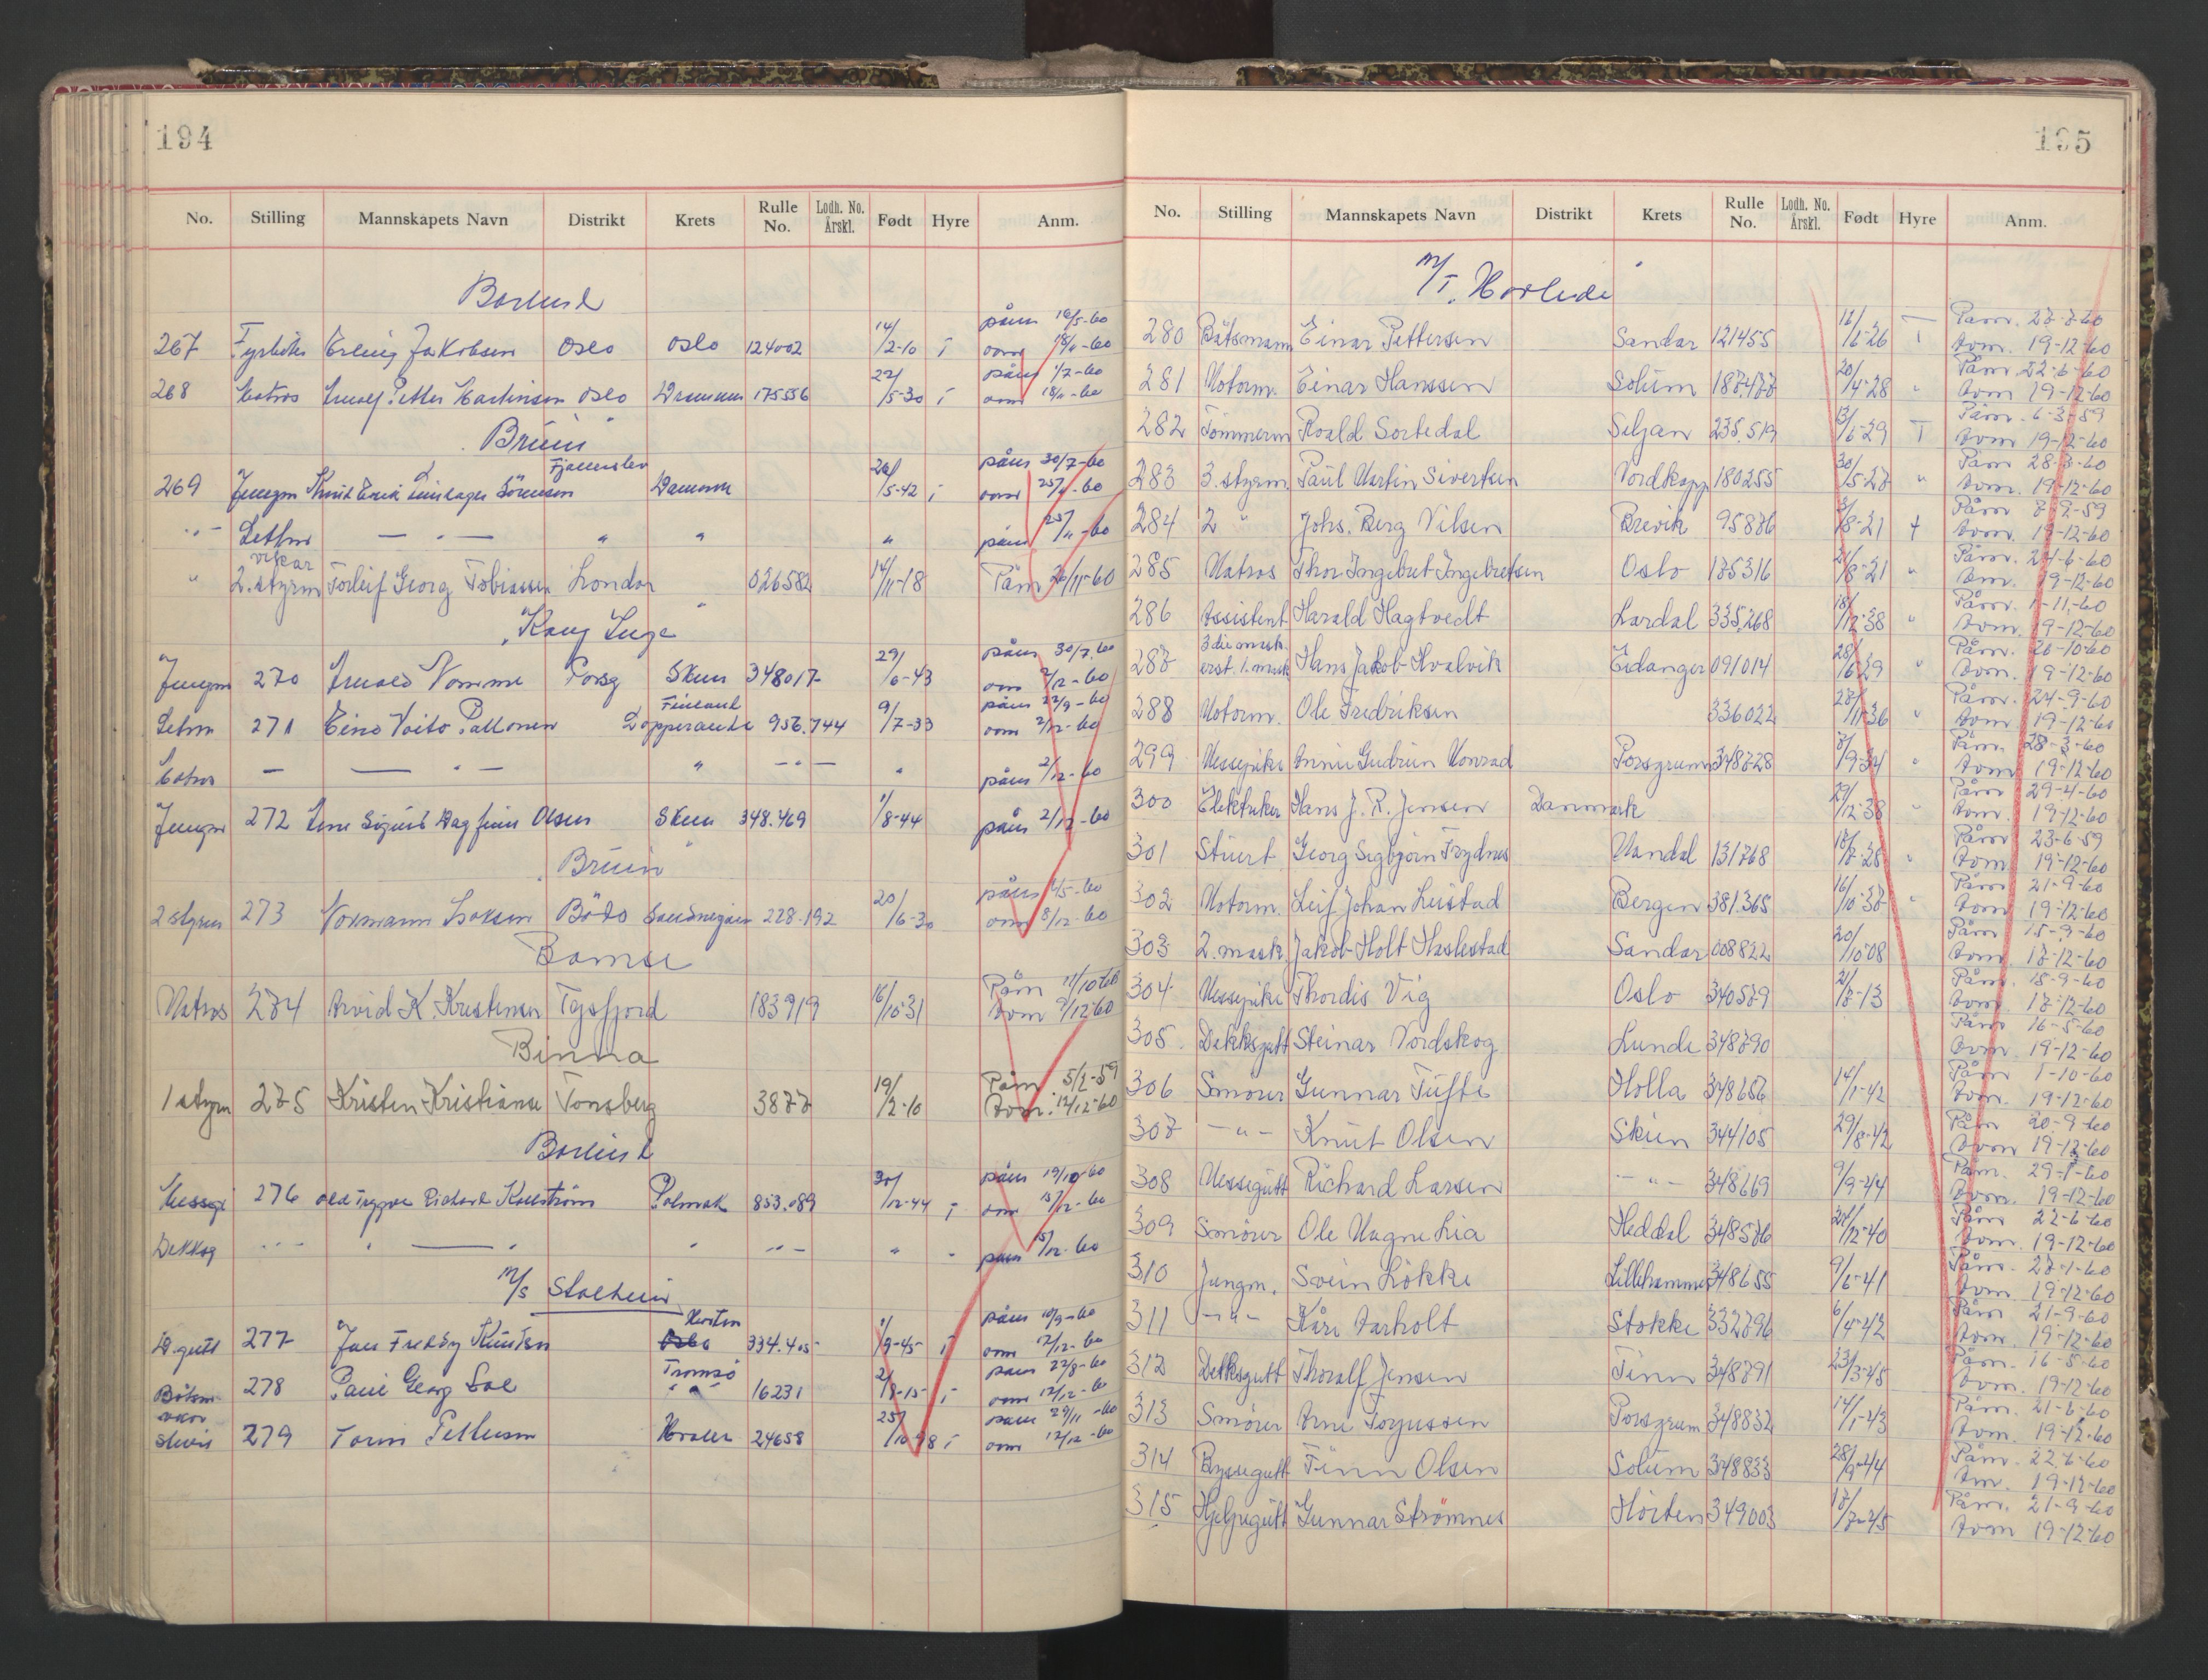 194
No. Stilling Mannskapets Navn Distrikt Krets Rulle No. Lodh. No. Årskl. Født Hyre Anm.
påm 19/5-60
267 Fyrböter Erling Jakobsen Oslo Oslo 124002 14/2-10 i avm 18/11-60
påm 1/7-60
268 Matros Petter Martinsen Oslo Drammen 175556 22/5-30 i avm 18/11-60
"Bruin"
Fjennslev påm 30/7-60
269 Jungm Knud Erik Sörensen Danmark 26/5-42 i avm 25/11-60
-"- Letmr — " — " " " påm 25/11-60
vikar
" 2. styrm Torleif Georg Tobiassen London 026582 14/11-18 Påm 26/11-60
"Kong Inge"
påm 30/7-60
Jungm 270 Arnold Nomme Porsg Skien 348017 29/6-43 avm 2/12-60
Finland påm 22/9-60
Letm 271 Eino Voito Pallonen 956.744 9/7-33 avm 2/12-60
Matros — — " — " — " — " påm 2/12-60
Jungm 272 Arne Sigurd Dagfinn Olsen Skien 348.469 1/8-44 påm 2/12-60
"Bruin"
2 styrm 273 Normann Isaksen Bodö 228.192 20/6-30 avm 8/12-60
Bomse
Påm 11/10-60
Matros 274 Arvid K. Kristensen Tysfjord 183919 16/10-31 Avm 9/12-60
Binna
Påm 5/2-59
1 styrm 275 Kristen Kristianse Tonsberg 3877 19/2-10 Avm. 12/12-60
påm 19/10-60
Messgt 276 Odd Trygve Richard Polmak 853.089 30/12-44 i avm 15/12-60
Dekksg -"- " — " " -"- " " påm 15/12-60
M/S Stalheim
Horten påm 10/9-60
D.gutt 277 Jan Fredby Knutsen Oslo 334.405 1/9-45 i avm 12/12-60
Tromsö påm 22/8-60
Båtsm 278 Paul Georg " 16231 2/8-15 i avm 12/12-60
påm 29/11-60
279 Torm Pettersen Hvaler 24658 25/10-98 i avm 12/12-60
195
No. Stilling Mannskapets Navn Distrikt Krets Rulle No. Lodh. No. Årskl. Født Hyre Anm.
M/T. "Havlide"
Påm. 27-7-60
280 Båtsmann Einar Pettersen Sandar 121455 T Avm. 19-12-60
Påm 22-6-60
281 Motorm. Einar Hanssen Solum 187.477 20/4-28 " Avm 19-12-60
Påm. 6-3-59
282 Tömmerm Roald Sortedal Seljan 235.519 13/6-29 T Avm 19-12-60
Påm 28-3-60
283 3. styrm. Paul Martin Sivertsen Nordkapp 180255 30/5-27 " Avm. 19-12-60
284 2 " Johs. Berg Nilsen Brevik 95876 Avm. 19-12-60
Påm. 24-6-60
285 Matros Thor Ingebret Ingebretsen Oslo 175316 21/8-21 " Avm. 19-12-60
Påm. 1-11-60
286 Assistent Harald Hagtvedt Lardal 335.268 18/12-38 " Avm. 19-12-60
3die mask. Påm. 26-10-60
287 erst. 1. mask Hans Jakob Hvalvik Eidanger 091014 28/6-29 " Avm. 19-12-60
Påm. 24-9-60
288 Motorm. Ole Fredriksen 336022 28/11-36 " Avm 19-12-60
Påm. 28-3-60
299 Messepike Anni Gudrun Konrad Porsgrunn 348728 7/9-34 " Avm 19-12-60
Påm 29-4-60
300 Elektriker Hans J. R. Jensen Danmark 29/12-38 " Avm. 19-12-60
Påm 23-6-59
301 Stuert Georg Sigbjörn Frydnes Mandal 131768 " Avm 19-12-60
Påm 21-9-60
302 Motorm. Leif Johan Leistad Bergen 381.365 16/10-37 " Avm 19-12-60
Påm 15-9-60
303 2. mask. Jakob Holt Haslestad Sandar 008822 20/10-08 Avm. 17-12-60
Påm. 15-9-60
304 Messepike Thordis Vig Oslo 340579 21/7-13 Avm. 17-12-60
Påm 16-5-60
305 Dekksgutt Steinar Nordskog Lunde 348790 Avm. 19-12-60
Påm 1-10-60
306 Smörer Gunnar Tufte Holla 348656 14/1-42 Avm. 19-12-60
Påm 20-9-60
307 -"- Knut Olsen Skien 344105 29/8-42 Avm 19-12-60
Påm. 29-1-60
308 Messegutt Richard Larsen -"- 348669 9/9-44 Avm. 19-12-60
Påm 22-6-60
309 Smörer Ole Magne Lia Heddal 348576 Avm. 19-12-60
Påm. 27-1-60
310 Jungm. Svein Lökke Lillehammer 348655 9/6-41 Avm. 19-12-60
Påm 21-9-60
311 -"- Kåre Aarholt Stokke 332796 6/4-42 Avm. 19-12-60
Påm. 16-5-60
312 Dekksgutt Thoralf Jensen Tinn 348791 23/3-45 Avm. 19-12-60
Påm. 21-6-60
313 Smörer Arne Torgussen Porsgrunn 348832 14/1-43 Avm. 19-12-60
Påm. 22-6-60
314 Byssegutt Finn Olsen Solum 348833 28/9-44 Avm. 19-12-60
Påm. 21-9-60
315 Hjelpegutt Gunnar Strömnes Horten 349003 17/7-45 Avm 19-12-60